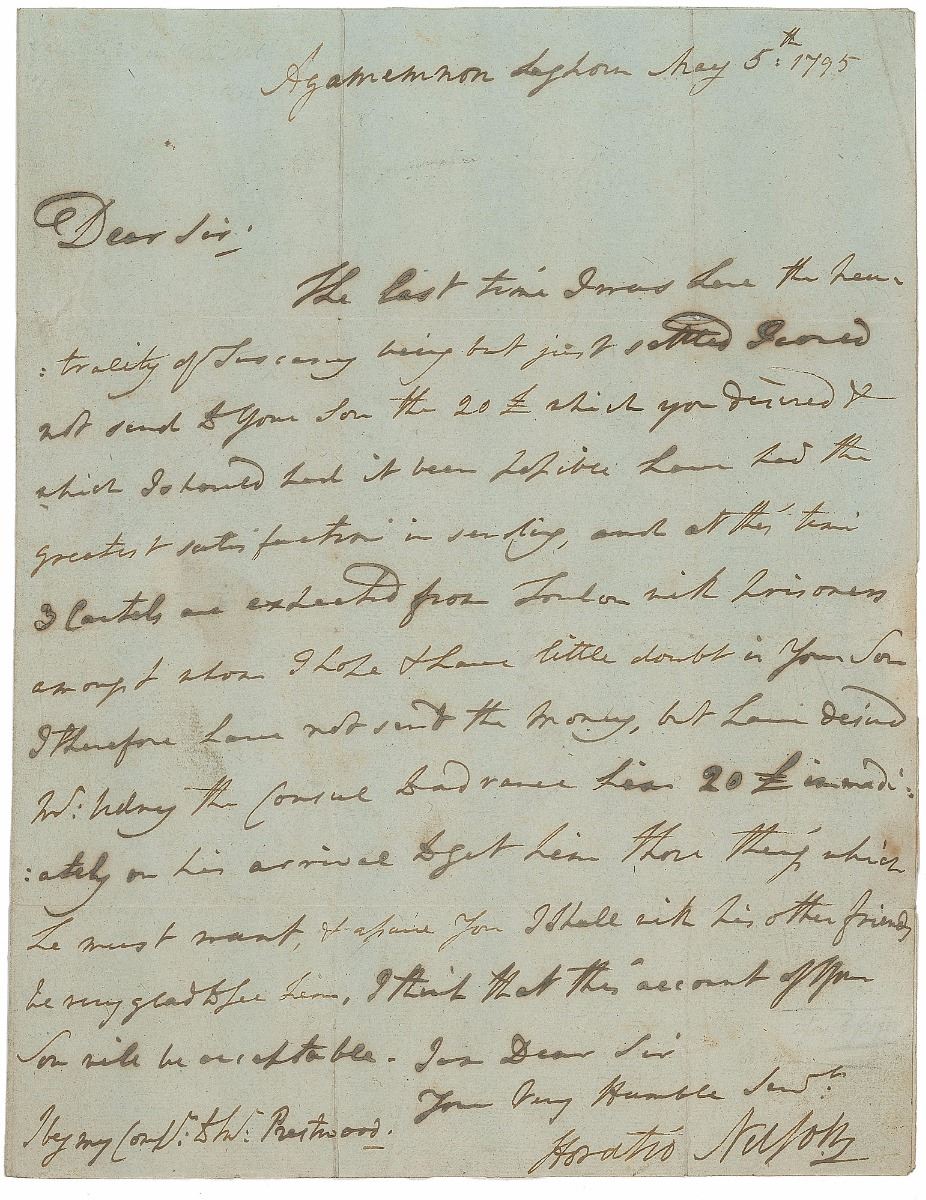 Agamemnon Leghorn May 5:th 1795
Dear Sir:
The last time I was here the neu-
:trality of Tuscany being but just settled I could
not send to Your Son the 20 £ which you desired &
which I should had it been possible have had the
greatest satisfaction in sending, and at this time
3 Cartels are expected from Toulon with prisoners
amongst whom I hope & have little doubt is Your Son
I therefore have not sent the money, but have desired
Mr: Udney the Consul to advance him 20 £ immedi:
:ately on his arrival to get him those things which
he must want, & assure You I shall with his other friends
be very glad to see him, I think that this account of Your
Son will be acceptable - I am Dear Sir
Your Very Humble Servt:
I beg my Compts: to Mr: Prestwood.
Horatio Nelson